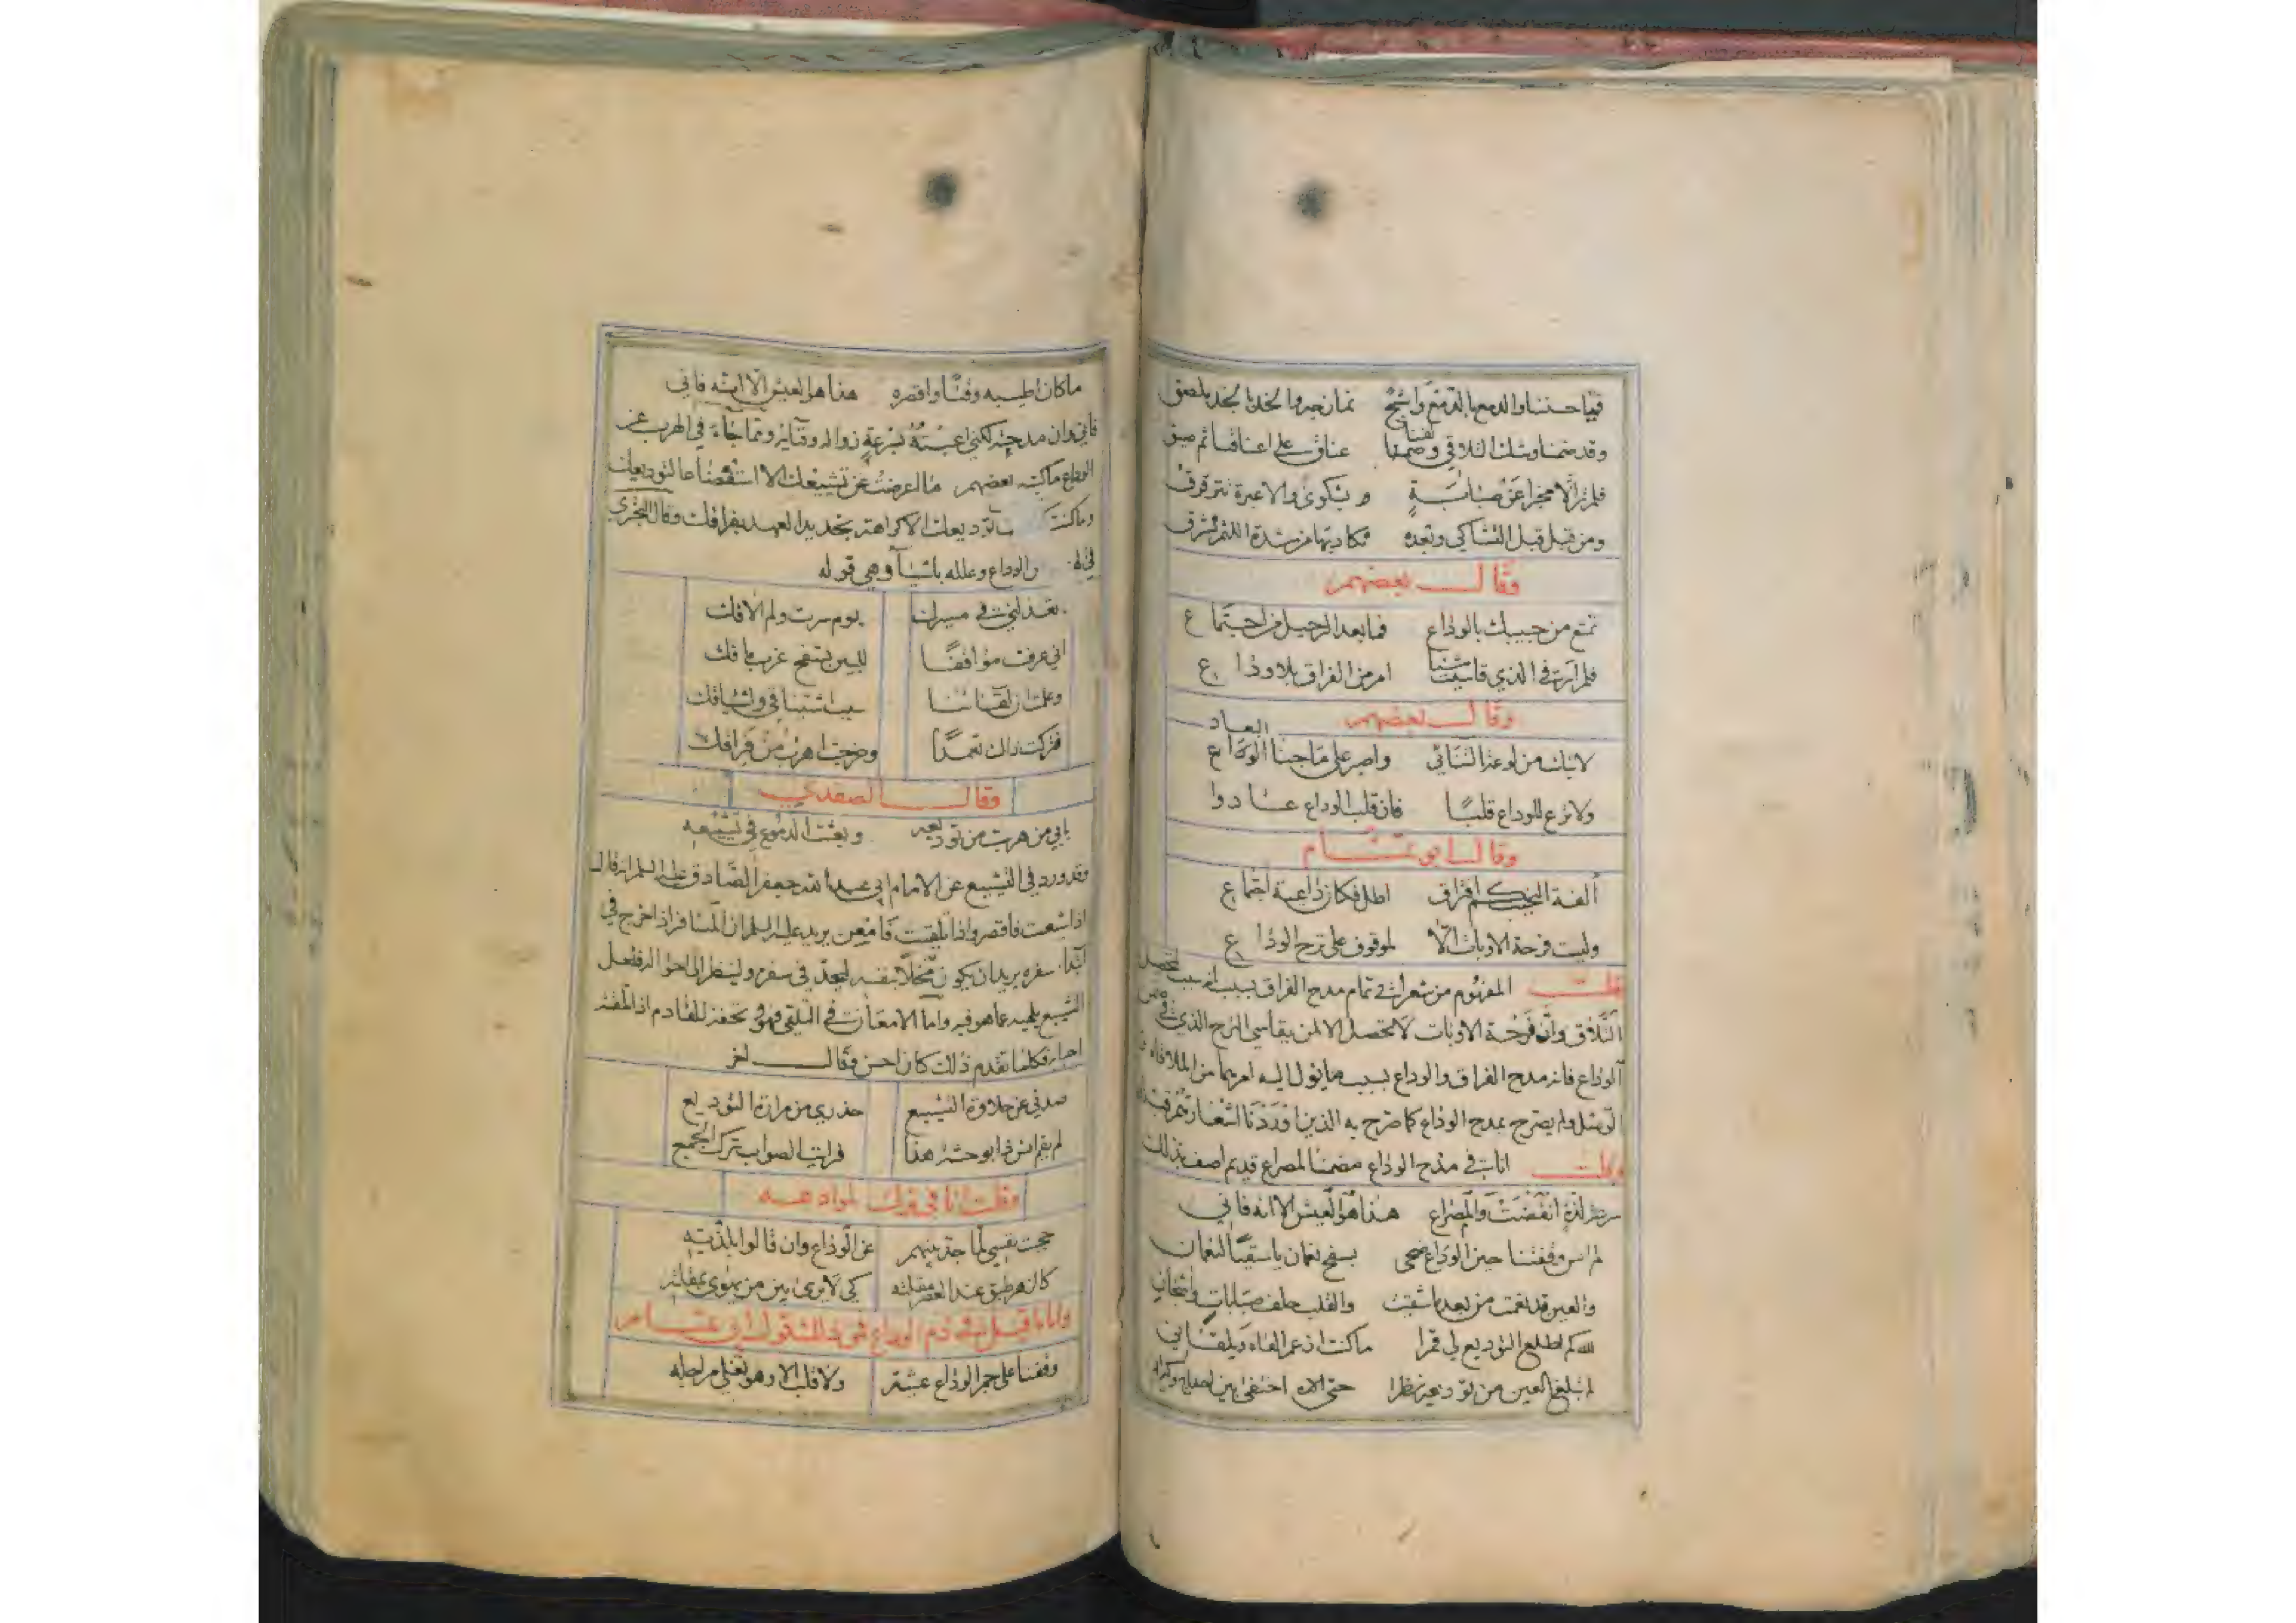 فيا حسننا والدمع بالدمع واشج تمازجه والخد بالخد ملصق
وقد ضمنا وشك التلاقي ولفنا عناق على اعناقنا ثم ضيق
فلم نر الا مخبرا عن صبابة و بشكوى والا عبرة تترقرق
ومن قبل قبل التشاكي وبعده فكادبها من شدة اللثم نشرق
وقال بعضهم
تمتع من حبيبك بالوداع فما بعد الرحيل من اجتماع
فلم ار في الذي قاسيت امر من الفراق بلا وداع
وقال بعضهم
البعاد
واصبر على ما جنا الوداع
ولا ترع للوداع قلبا فان قلب الوداع عادوا
وقال ابو تمام
ألفة النحيب كم افتراق اطل فكان داعية اجتماع
وليست فرحة الاوبات الا لموقوف على ترح الوداع
قلت المفهوم من شعر ابي تمام مدح الفراق بسبب انه سبب لتحصل
التلاق وان فرحة الاوبات لا تحصل الا لمن يقاسي الترح الذي في
الوداع فانه مدح الفراق والوداع بسبب ما يئول اليه امرهما من الملاقاة
الوصل ولم يصرح بمدح الوداع كما صرح به الذين اوردنا اشعارهم
وقلت انا في مدح الوداع مضمنا لمصراع قديم اصف بذلك
لذة انقضت والمصراع هذا هو العيش الا انه فاني
لم انس وقفتنا حين الوداع ضحى بسفح نعمان يا سقيا لنعمان
والعين قد نعمت من بعد ما شقيت والقلب حلف صبابات واشجان
لله كم اطلع التوديع لي قمرا ما كنت ازعم القاه ويلقاني
لم تبلغ العين من توديعه نظرا حتى اختفى بين
ما كان اطيبه وقتا واقصره هذا هو العيش الا انه فاني
فاني وان مدحته لكنني اعبته بسرعة زواله وفنائه ومما جاء في الهرب عن
الوداع ما كتبه بعضهم ما اعرضت عن تشييعك الا استفضاعا لتوديعك
وما كنت توديعك الا كراهة تجديد العهد بفراقك وقال البحتري
الوداع وعلله باشياء وهي قوله
تعذلني في مسيرك يوم سرت ولم الاقك
اني عرفت مواقفا للبين تسفح غرب ماقك
وعلمت ان لقائنا سبب اشتياقي واشتياقك
فتركت ذاك تعمدا وخرجت اهرب من فراقك
وقال الصفدي
بابي من هربت من توديعه وبعثت الدموع في تشييعه
وقد ورد في التشييع عن الامام ابي عبد الله جعفر الصادق عليه السلم انه قال
اذا شيعت فاقصر واذا تلقيت فامعن يريد عليه السلم ان المسافر اذا خرج في
ابتداء سفره يريد ان يكون مخلا بنفسه ليجد في سفره ولينظر الى احواله فلعل
التشييع يلهيه عما هو فيه واما الامعان في التلقي فهو تحفة للقادم
فكلما تقدم ذلك كان احسن وقال اخر
صدني عن حلاوة التشييع حذري من مرارة التوديع
لم يقم انس ذا بوحشة هذا فرايت الصواب ترك الجميع
وقلت انا في ترك الموادعة
حجبت نفسي لما جد بينهم عن الوداع وان قالوا بلذته
كالغمر طبق عند مقلته كي لا يرى بين من يهوى بمقلته
واما ما قيل في ذم الوداع فمن ذلك قول ابي تمام
وقفنا على جمر الوداع عشية ولا قلب الا وهو تغلي مراجله